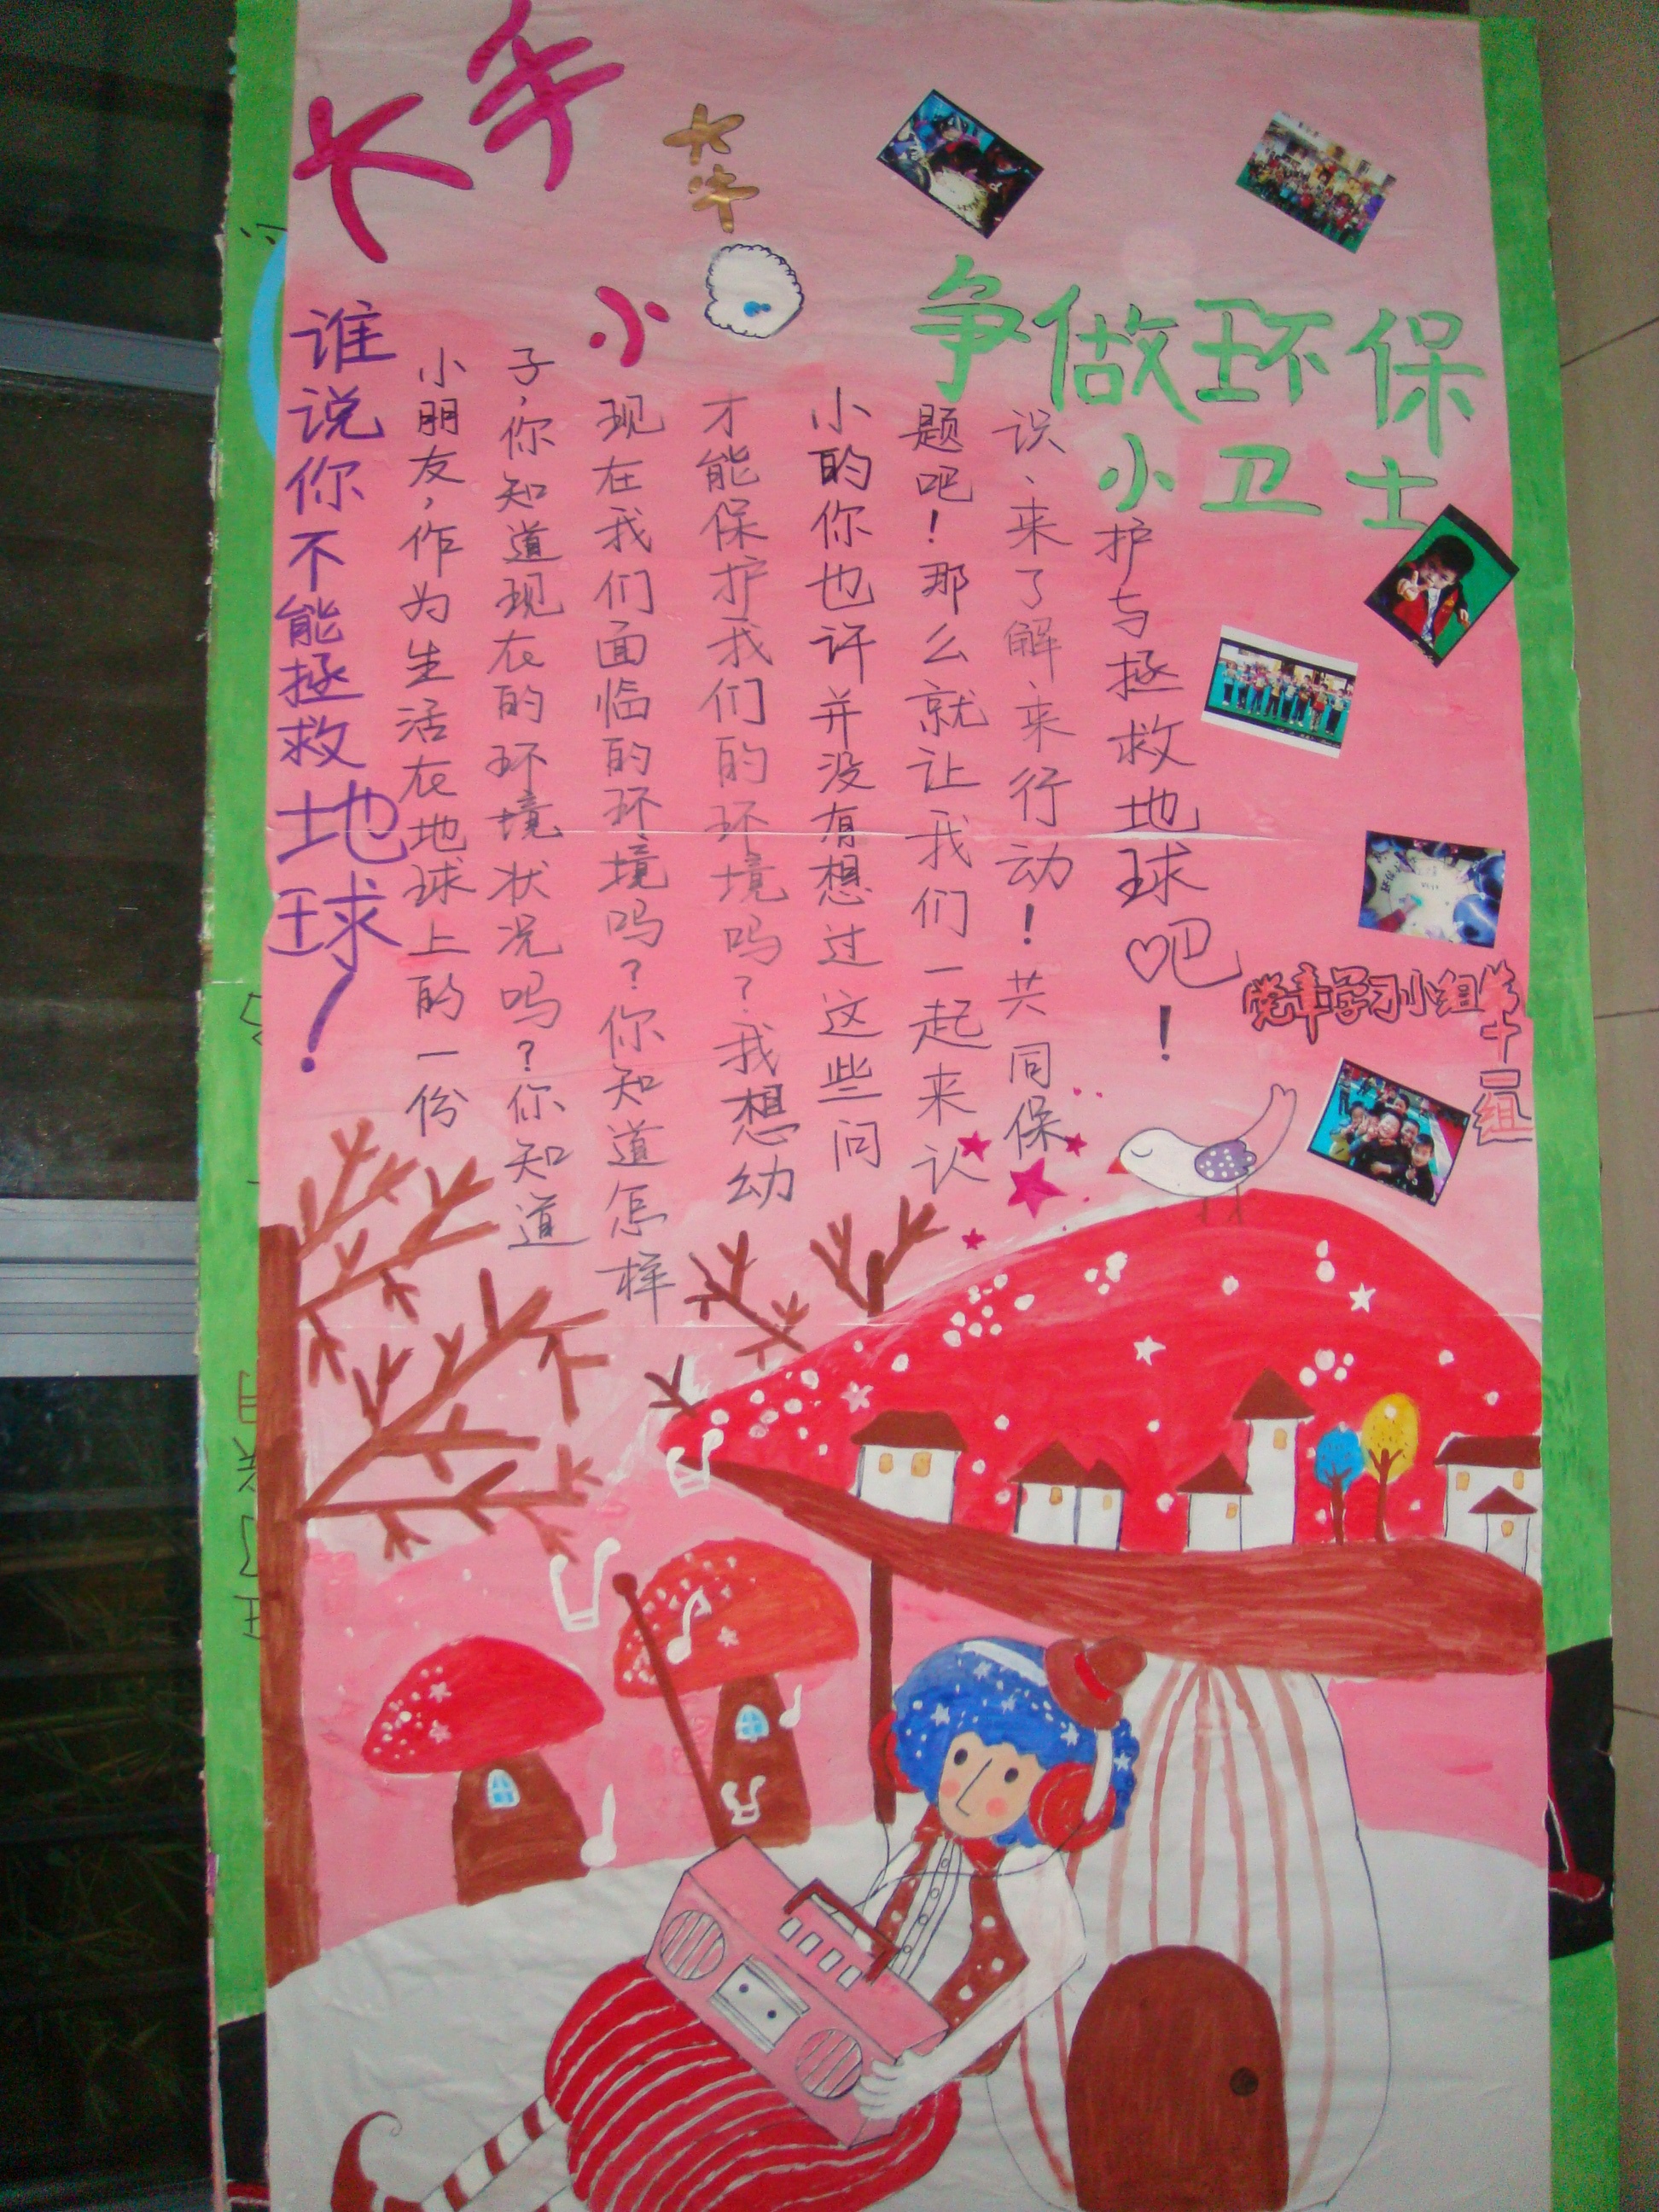 大手
小
争做环保
小卫士
谁说你不能拯救地球！
小朋友，作为生活在地球上的一份
子，你知道现在的环境状况吗？你知道
现在我们面临的环境吗？你知道怎样
才能保护我们的环境吗？我想幼
小的你也许并没有想过这些问
题吧！那么就让我们一起来认
识、来了解来行动！共同保
护与拯救地球吧！
党章学习小组第十一组